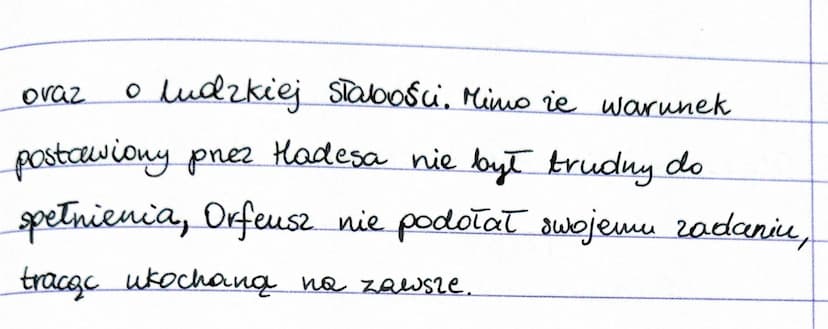 oraz o ludzkiej słabości. Mimo że warunek
postawiony przez Hadesa nie był trudny do
spełnienia, Orfeusz nie podołał swojemu zadaniu,
tracąc ukochaną na zawsze.